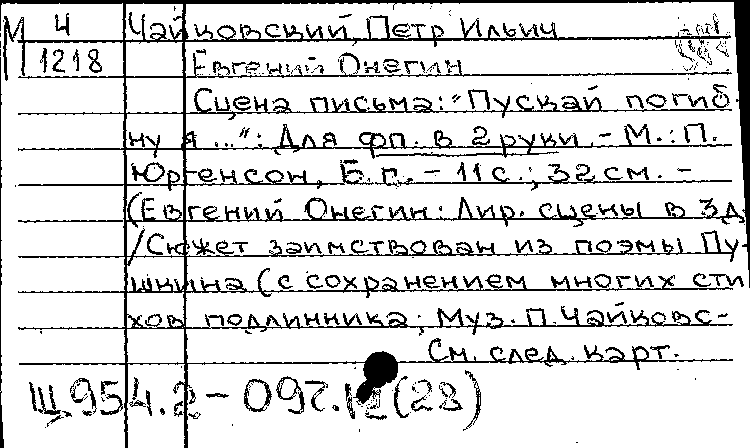 М 4 Чайковский, Петр Ильич
1218 Евгений Онегин
Сцена письма: "Пускай погиб-
ну я ...": Для фп. в 2 руки. - М.: П.
Юргенсон, Б.г. - 11 с.; 32 см. -
(Евгений Онегин: Лир. сцены в 3д
/Сюжет заимствован из поэмы Пу-
шкина (с сохранением многих сти
хов подлинника; Муз. П. Чайковс-
См. след. карт.
Щ954.2-097.
(28)